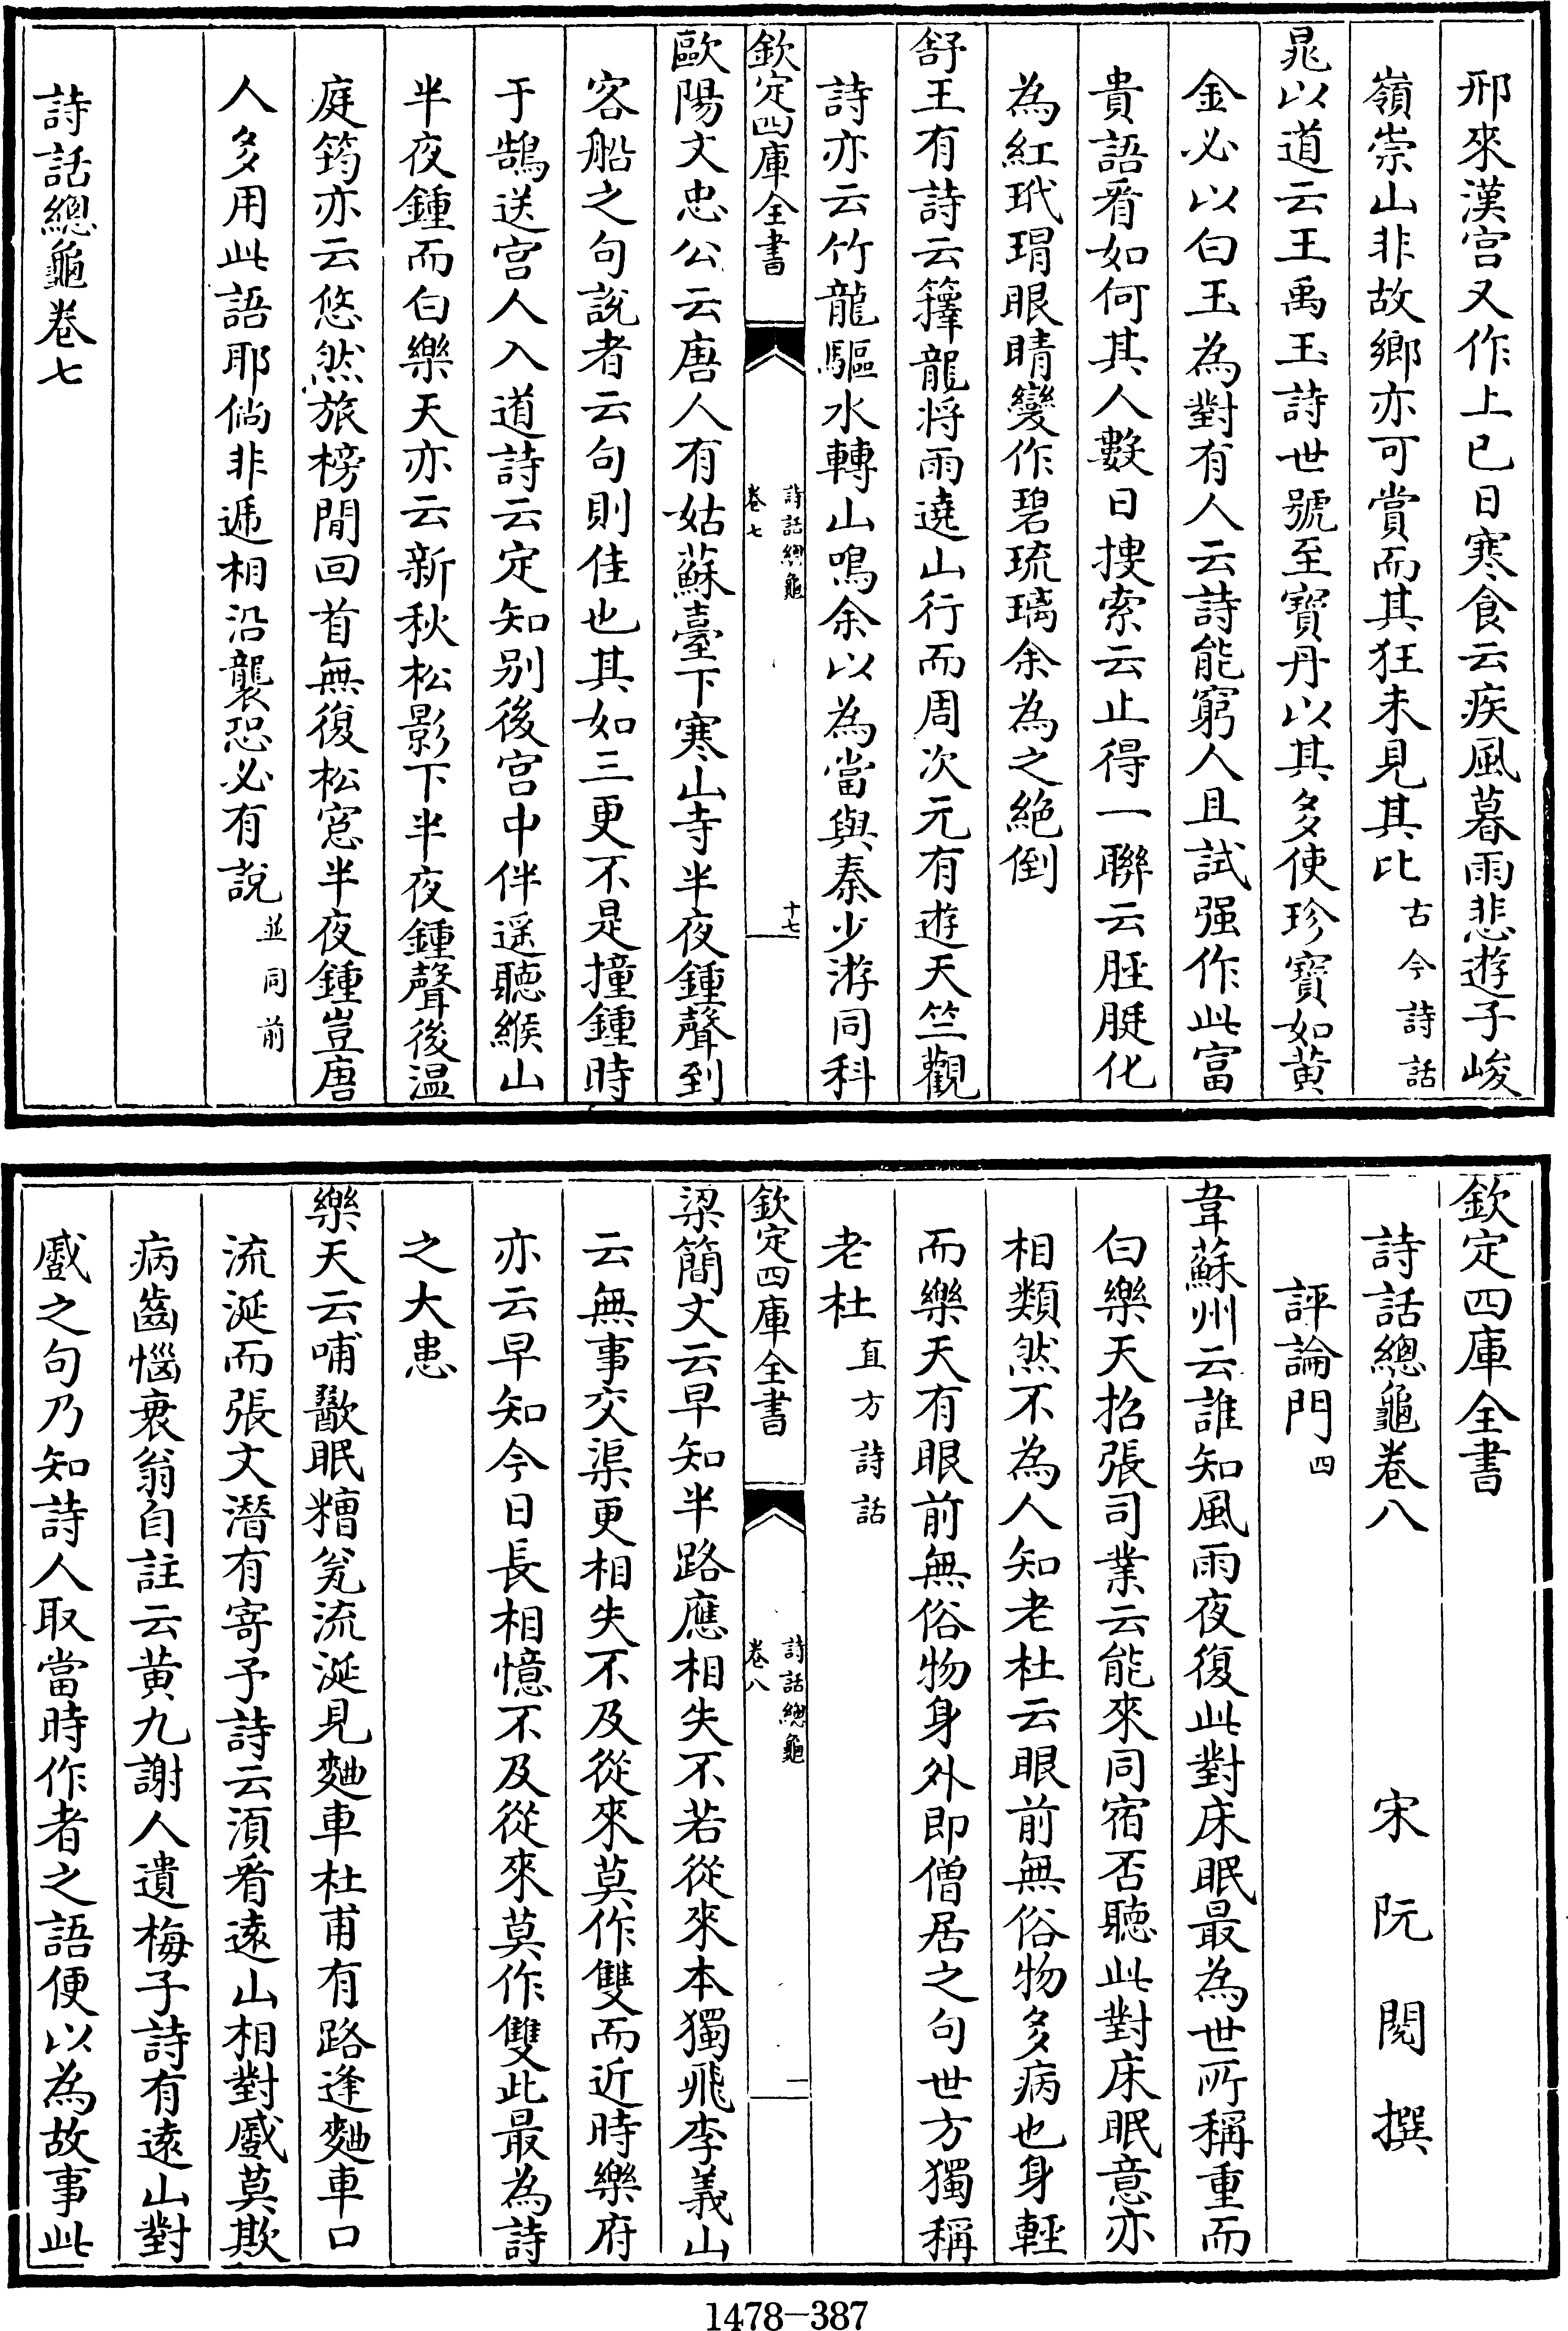 邢來漢宫又作上巳日寒食云疾風暮雨悲遊子峻
嶺崇山非故鄉亦可賞而其狂未見其比古今詩話
晁以道云王禹玉詩世號至寶丹以其多使珍寶如黄
金必以白玉為對有人云詩能窮人且試强作此富
貴語看如何其人數日搜索云止得一聯云脛脡化
為紅玳瑁眼睛變作碧琉璃余為之絶倒
舒王有詩云籜龍將雨遶山行而周次元有遊天竺觀
詩亦云竹龍驅水轉山鳴余以為當與秦少游同科
欽定四庫全書
詩話總龜
卷七
十七
歐陽文忠公云唐人有姑蘇臺下寒山寺半夜鍾聲到
客船之句説者云句則佳也其如三更不是撞鍾時
于鵠送宫人入道詩云定知别後宫中伴遥聽緱山
半夜鍾而白樂天亦云新秋松影下半夜鍾聲後温
庭筠亦云悠然旅榜間回首無復松窓半夜鍾豈唐
人多用此語耶倘非遞相沿襲恐必有説並同前
詩話總龜卷七
欽定四庫全書
詩話總龜卷八
宋阮閱撰
評論門四
韋蘇州云誰知風雨夜復此對床眠最為世所稱重而
白樂天招張司業云能來同宿否聽此對床眠意亦
相類然不為人知老杜云眼前無俗物多病也身輕
而樂天有眼前無俗物身外即僧居之句世方獨稱
老杜直方詩話
欽定四庫全書
詩話總龜
卷八
一
梁簡文云早知半路應相失不若從來本獨飛李義山
云無事交渠更相失不及從來莫作雙而近時樂府
亦云早知今日長相憶不及從來莫作雙此最為詩
之大患
樂天云哺歠眠糟瓮流涎見麴車杜甫有路逢麴車口
流涎而張文潛有寄予詩云須看遠山相對蹙莫欺
病齒惱衰翁自註云黄九謝人遺梅子詩有遠山對
蹙之句乃知詩人取當時作者之語便以為故事此
1478-387